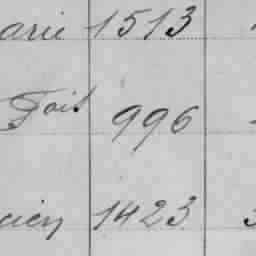 arie 1513
Toit 996
cien 1423 3